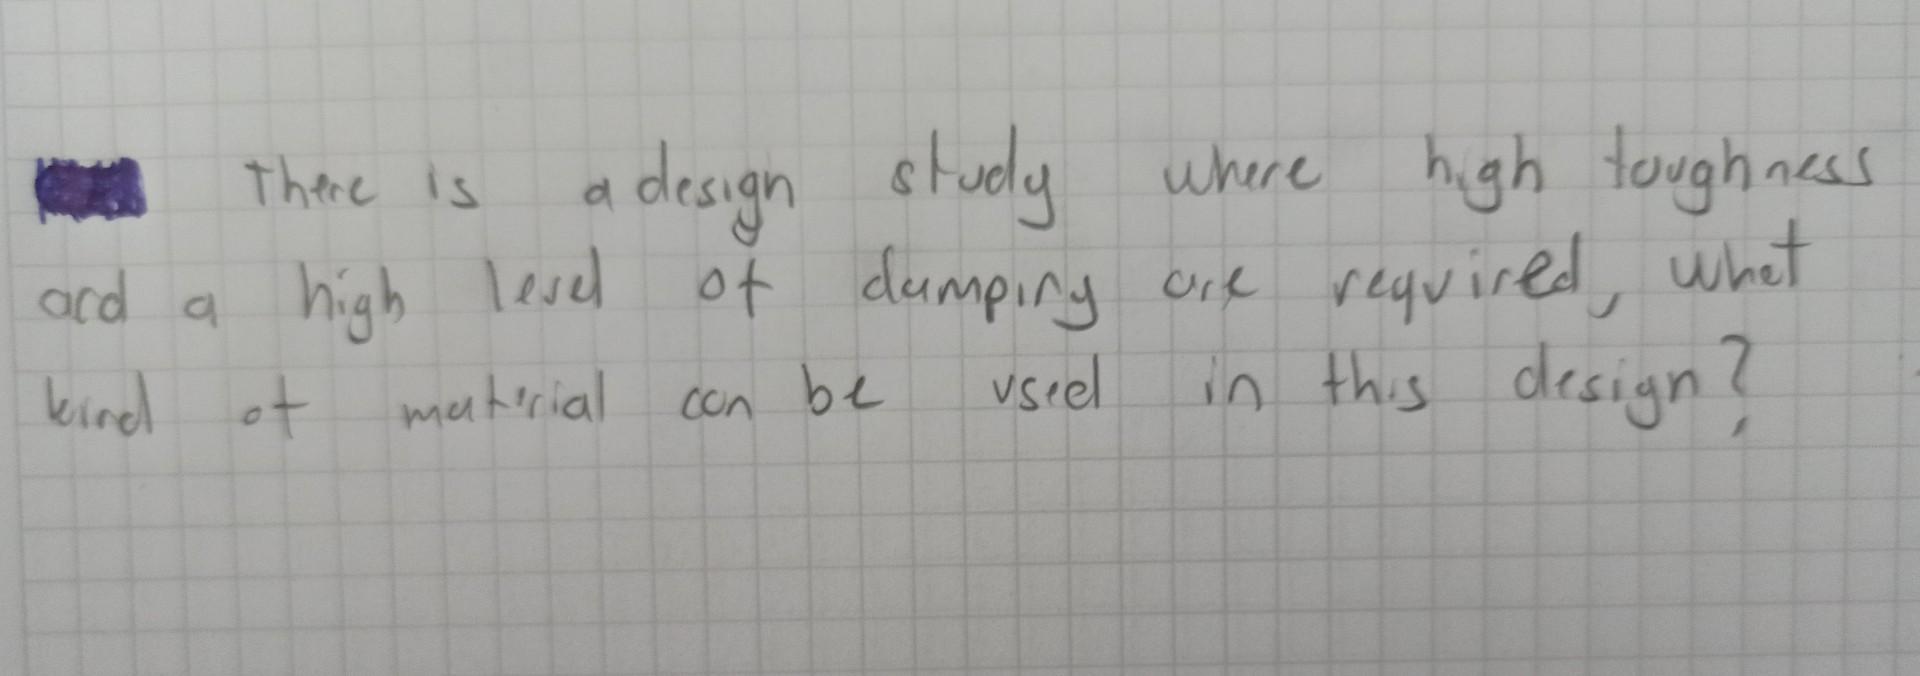 There is a design study where high toughness
and a high level of damping are required, what
kind of material can be used in this design?